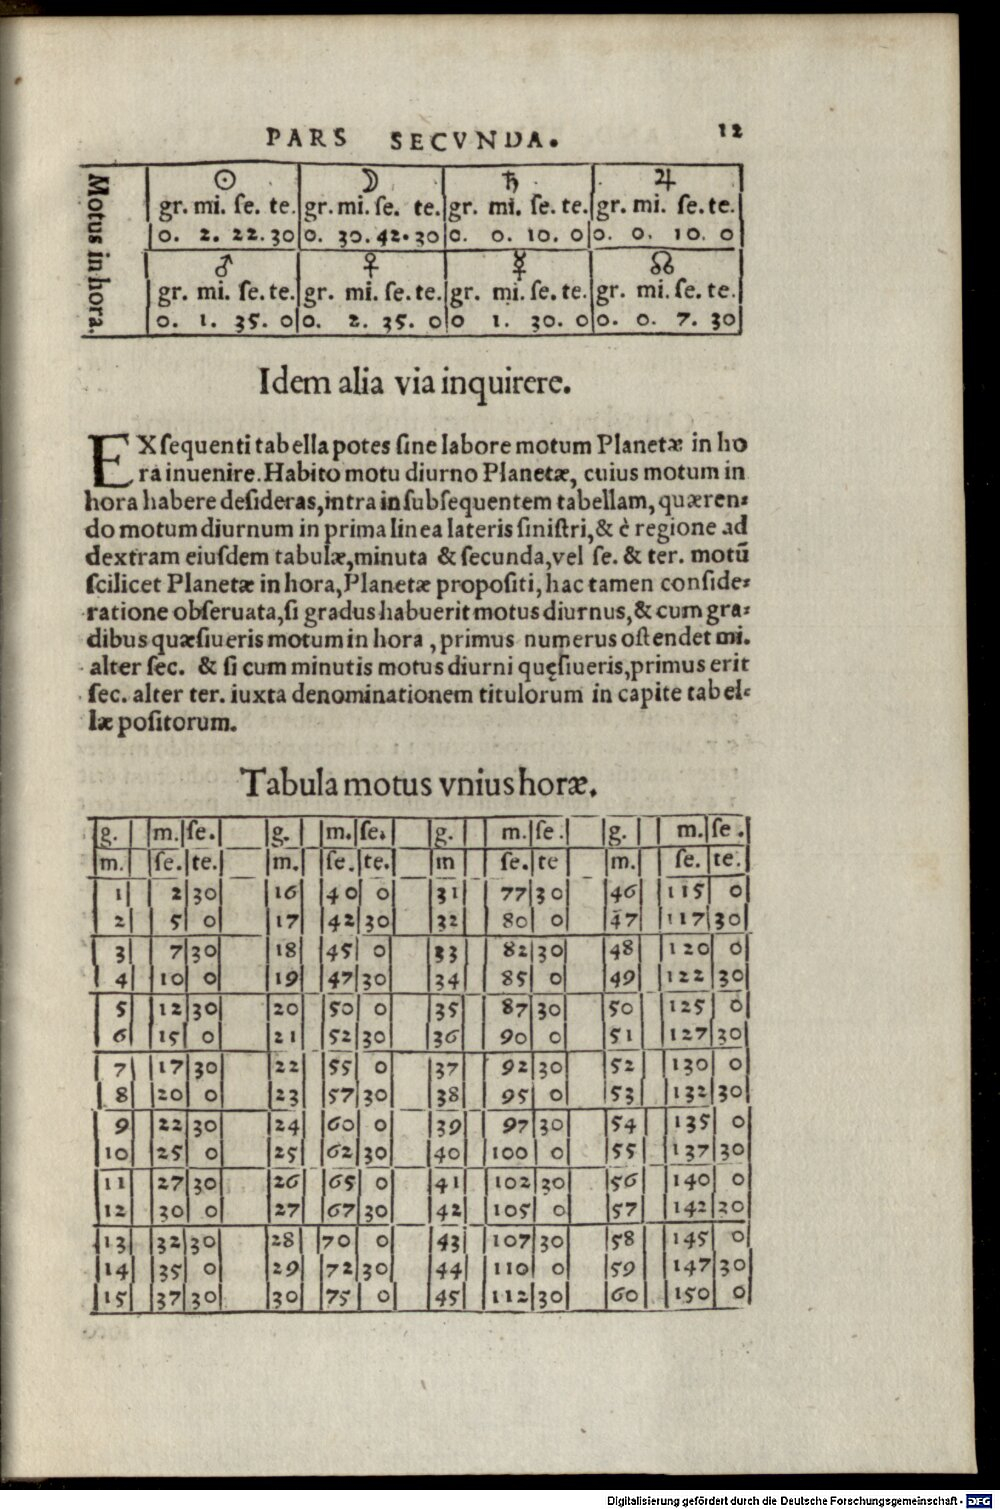 PARS SECVNDA. 12
Motus in hora.
☉ ☽ ♄ ♃
gr. mi. ſe. te. gr. mi. ſe. te. gr. mi. ſe. te. gr. mi. ſe. te.
0. 2. 22. 30 0. 30. 42. 30 0. 0. 10. 0 0. 0. 10. 0
♂ ♀ ☿ ☊
gr. mi. ſe. te. gr. mi. ſe. te. gr. mi. ſe. te. gr. mi. ſe. te.
0. 1. 35. 0 0. 2. 35. 0 0 1. 30. 0 0. 0. 7. 30
Idem alia via inquirere.
EX ſequenti tabella potes ſine labore motum Planetæ in ho
ra inuenire. Habito motu diurno Planetæ, cuius motum in
hora habere deſideras, intra in ſubſequentem tabellam, quæren-
do motum diurnum in prima linea lateris ſiniſtri, & è regione ad
dextram eiuſdem tabulæ, minuta & ſecunda, vel ſe. & ter. motū
ſcilicet Planetæ in hora, Planetæ propoſiti, hac tamen conſide-
ratione obſeruata, ſi gradus habuerit motus diurnus, & cum gra-
dibus quæſiueris motum in hora, primus numerus oſtendet mi.
alter ſec. & ſi cum minutis motus diurni quęſiueris, primus erit
ſec. alter ter. iuxta denominationem titulorum in capite tabel-
læ poſitorum.
Tabula motus vnius horæ.
g. m. ſe. g. m. ſe. g. m. ſe. g. m. ſe.
m. ſe. te. m. ſe. te. m ſe. te m. ſe. te.
1 2 30 16 40 0 31 77 30 46 115 0
2 5 0 17 42 30 32 80 0 47 117 30
3 7 30 18 45 0 33 82 30 48 120 0
4 10 0 19 47 30 34 85 0 49 122 30
5 12 30 20 50 0 35 87 30 50 125 0
6 15 0 21 52 30 36 90 0 51 127 30
7 17 30 22 55 0 37 92 30 52 130 0
8 20 0 23 57 30 38 95 0 53 132 30
9 22 30 24 60 0 39 97 30 54 135 0
10 25 0 25 62 30 40 100 0 55 137 30
11 27 30 26 65 0 41 102 30 56 140 0
12 30 0 27 67 30 42 105 0 57 142 30
13 32 30 28 70 0 43 107 30 58 145 0
14 35 0 29 72 30 44 110 0 59 147 30
15 37 30 30 75 0 45 112 30 60 150 0
Digitalisierung gefördert durch die Deutsche Forschungsgemeinschaft - DFG